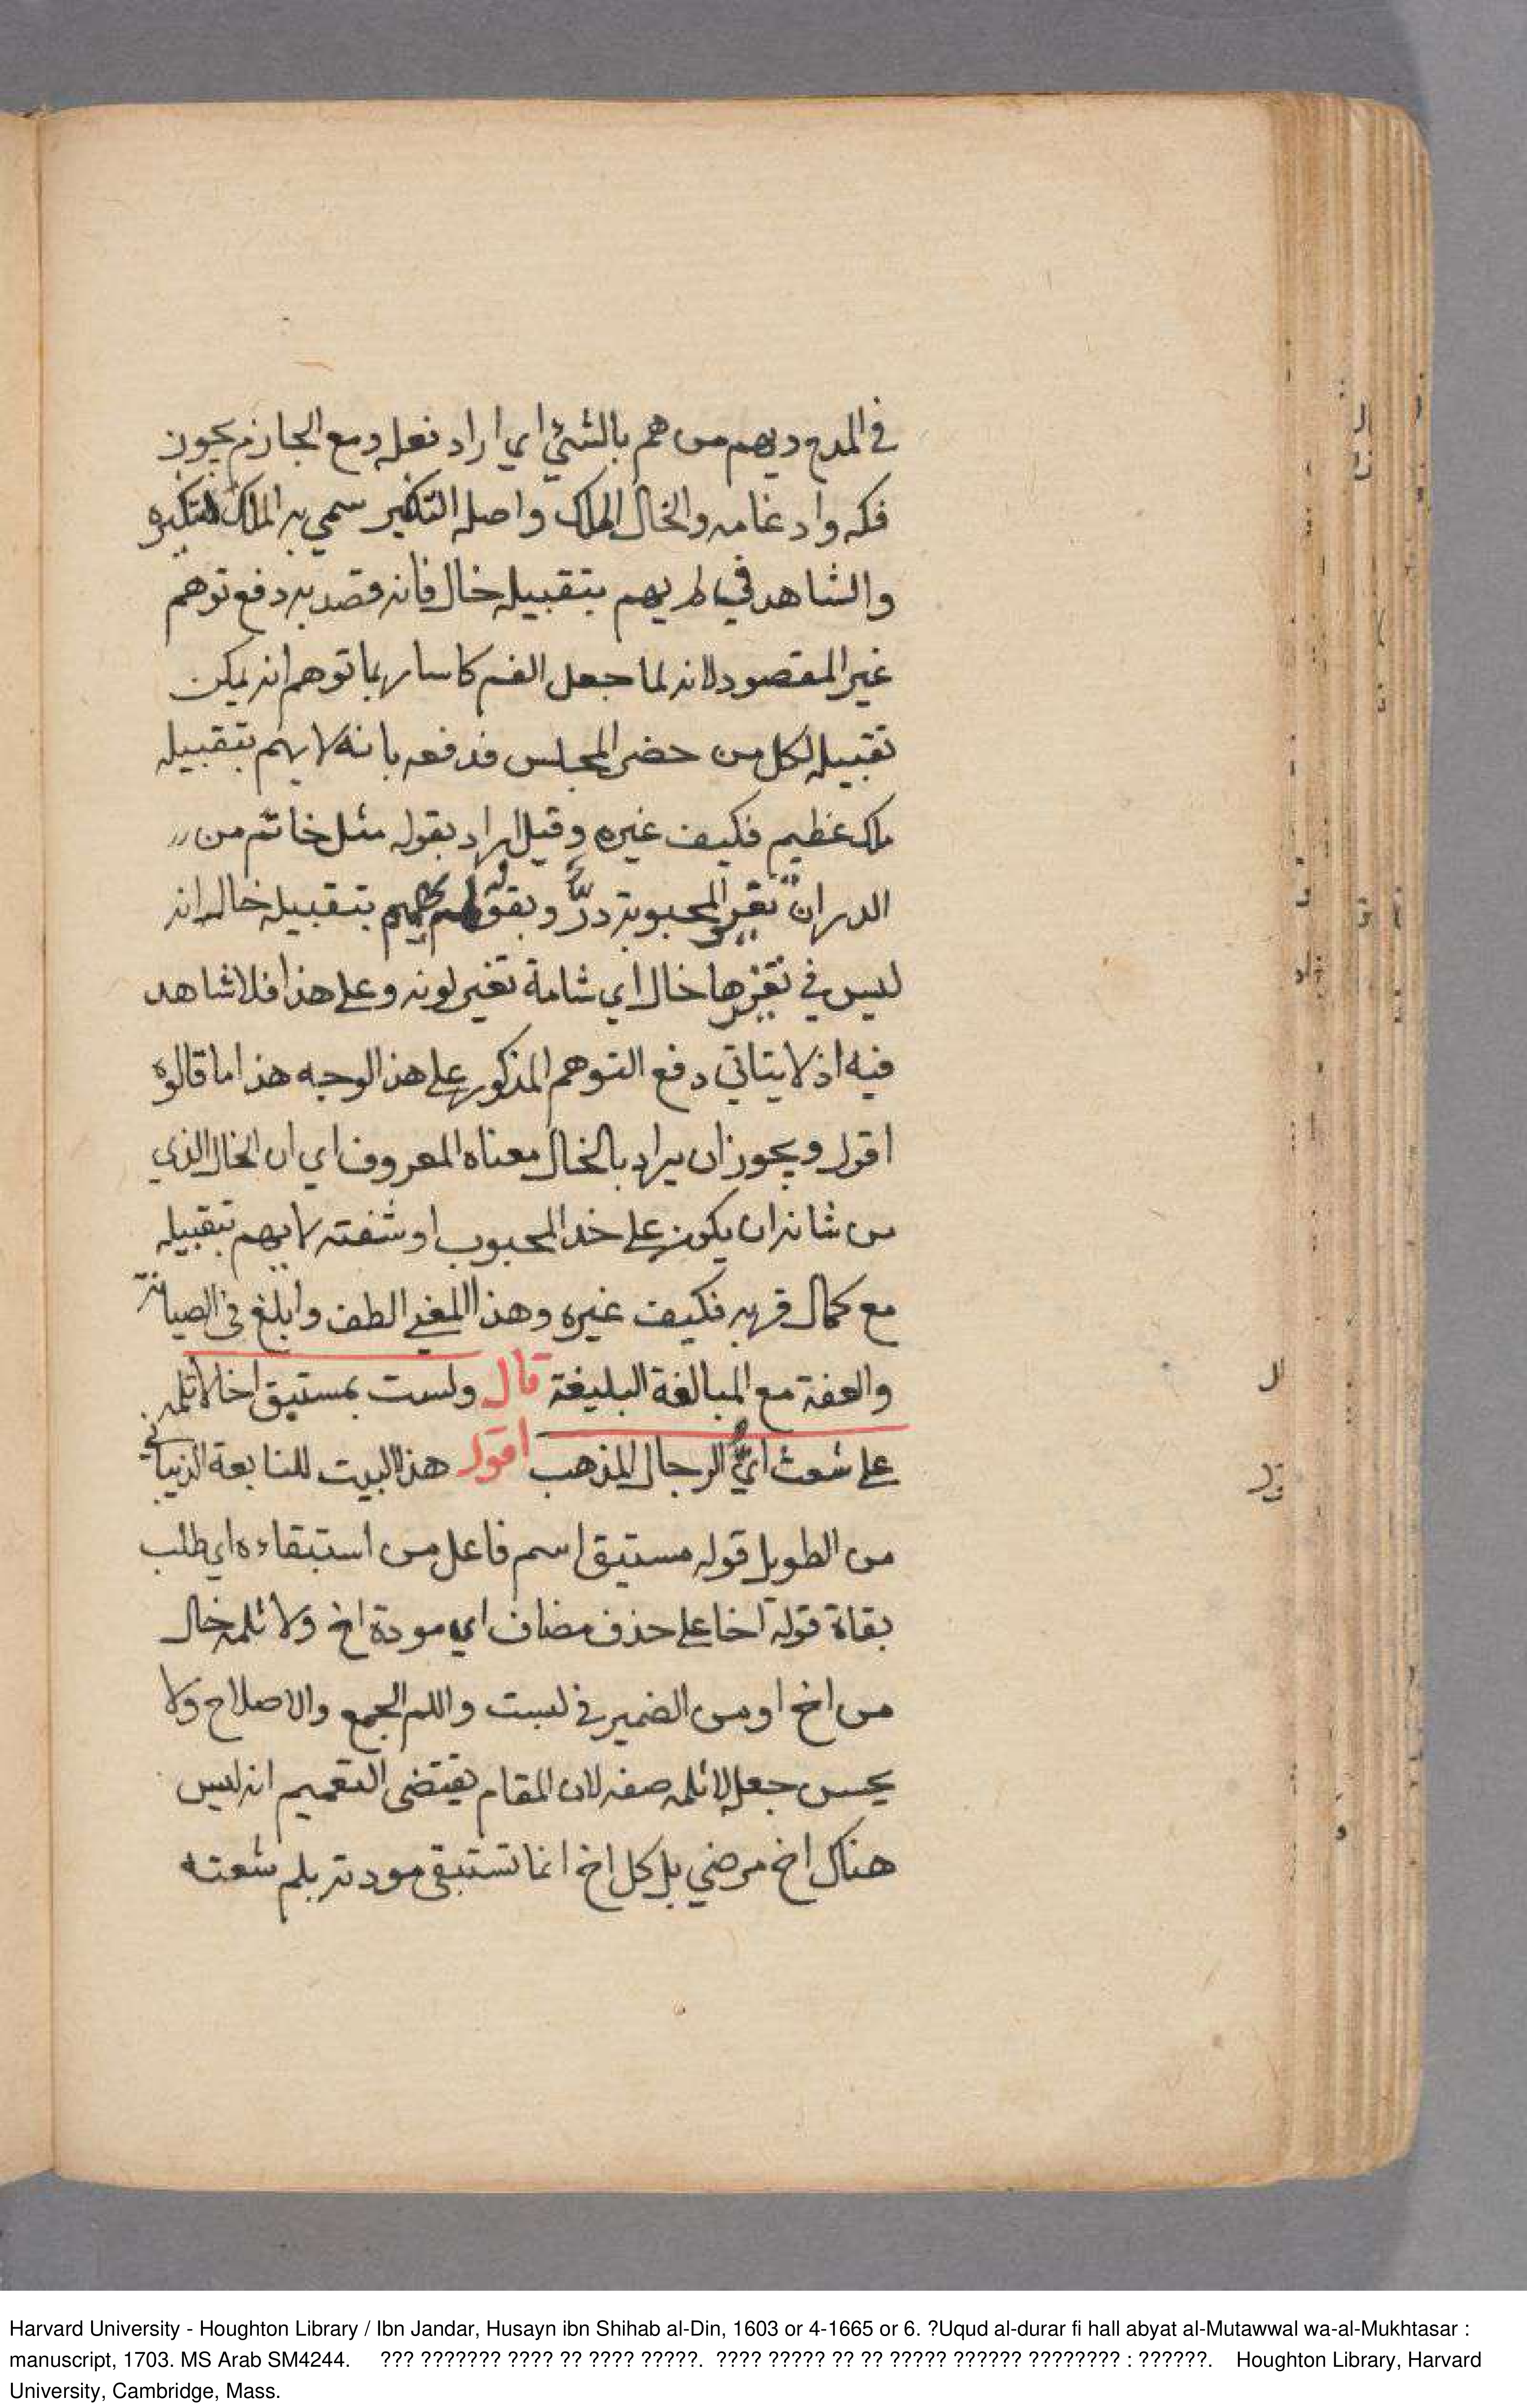 في المدح ويهم من هم بالشئ اي اراد فعله ومع الجازم يجوز
فكه وادغامه والخال الملك واصله التكبر سمي به الملك لتكبره
والشاهد في لم يهم بتقبيله خال فانه قصد به دفع توهم
غير المقصود لانه لما جعل الفم كاسا ربما توهم انه يمكن
تقبيله لكل من حضر المجلس فدفعه بانه لا يهم بتقبيله
ملك عظيم فكيف غيره وقيل اراد بقوله مثل خاتم من
الدر ان ثغر المحبوبة در وبقوله لم يهم بتقبيله خال انه
ليس في ثغرها خال اي شامة تغير لونه وعلى هذا فلا شاهد
فيه اذ لا يتاتي دفع التوهم المذكور على هذا الوجه هذا ما قالوه
اقول ويجوز ان يراد بالخال معناه المعروف اي ان الخال الذي
من شانه ان يكون على خد المحبوب او شفته لا يهم بتقبيله
مع كمال قربه فكيف غيره وهذا المعنى الطف وابلغ في الصيانة
والعفة مع المبالغة البليغة قال ولست بمستبق اخا لا تلمه
على شعث اي الرجال المذهب اقول هذا البيت للنابغة الذبياني
من الطويل قوله مستبق اسم فاعل من استبقاءه اي طلب
بقاة قوله اخا على حذف مضاف اي مودة اخ ولا تلمه حال
من اخ او من الضمير في لست واللم الجمع والاصلاح ولا
يحسن جعل لا تلمه صفه لان المقام يقتضى التعميم انه ليس
هناك اخ مرضي بل كل اخ انما تستبقى مودته بلم شعثه
Harvard University - Houghton Library / Ibn Jandar, Husayn ibn Shihab al-Din, 1603 or 4-1665 or 6. ?Uqud al-durar fi hall abyat al-Mutawwal wa-al-Mukhtasar :
manuscript, 1703. MS Arab SM4244. ??? ??????? ???? ?? ???? ?????. ???? ????? ?? ?? ????? ?????? ???????? : ??????. Houghton Library, Harvard
University, Cambridge, Mass.